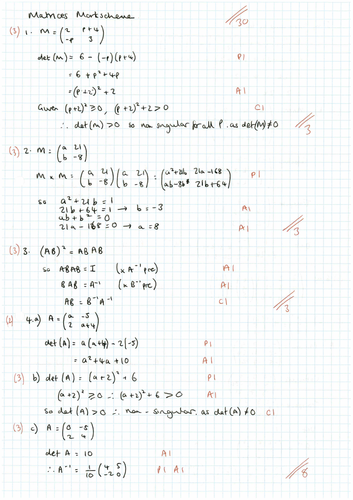 Matrices Markscheme
30
(3) 1. M = (2 p+4
-p 3)
det(M) = 6 - (-p)(p+4) P1
= 6 + p² + 4p
= (p+2)² + 2 A1
Given (p+2)² ≥ 0, (p+2)² + 2 > 0 C1
∴ det(M) > 0 so non singular for all P. as det(M) ≠ 0
3
(3) 2. M = (a 21
b -8)
M x M = (a 21
b -8) (a 21
b -8) = (a²+21b 21a-168
ab-8b 21b+64) P1
so a² + 21b = 1
21b + 64 = 1 → b = -3 A1
21a - 168 = 0 → a = 8 A1
3
(3) 3. (AB)² = ABAB
so ABAB = I (x A⁻¹ pre) A1
BAB = A⁻¹ (x B⁻¹ pre) A1
AB = B⁻¹A⁻¹ C1
3
4.a) A = (a -5
2 a+4)
det(A) = a(a+4) - 2(-5) P1
= a² + 4a + 10 A1
(3) b) det(A) = (a+2)² + 6 P1
(a+2)² ≥ 0 ∴ (a+2)² + 6 > 0 A1
so det(A) > 0 ∴ non-singular. as det(A) ≠ 0 C1
(3) c) A = (0 -5
2 4)
det A = 10 A1
∴ A⁻¹ = 1/10 (4 5
-2 0) P1 A1
8